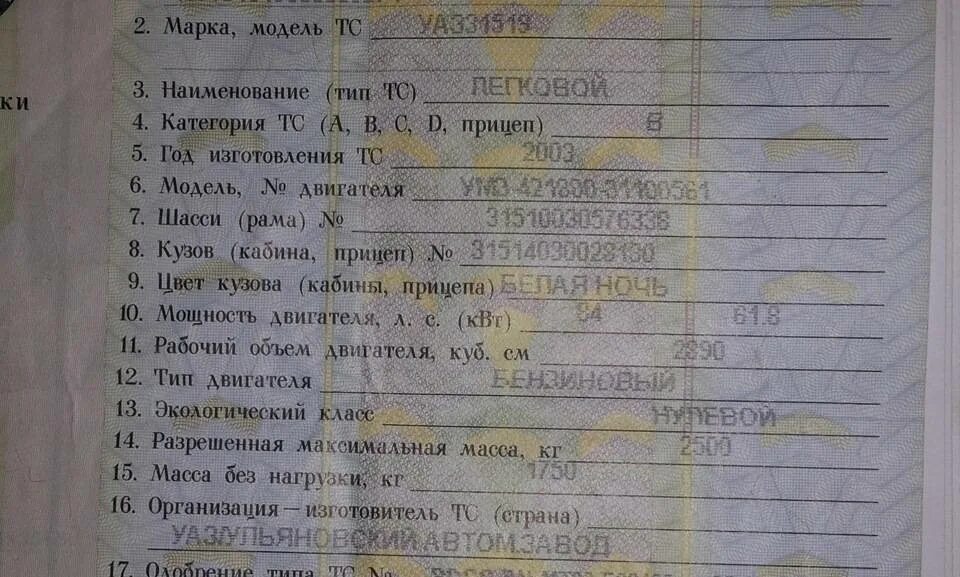 2. Марка, модель ТС УАЗ31519
ки
3. Наименование (тип ТС) ЛЕГКОВОЙ
4. Категория ТС (А, В, С, D, прицеп) В
5. Год изготовления ТС 2003
6. Модель, № двигателя УМЗ-421800-31100561
7. Шасси (рама) № 31510030576338
8. Кузов (кабина, прицеп) № 31514030028130
9. Цвет кузова (кабины, прицепа) БЕЛАЯ НОЧЬ
10. Мощность двигателя, л. с. (кВт) 84 61.8
11. Рабочий объем двигателя, куб. см 2890
12. Тип двигателя БЕНЗИНОВЫЙ
13. Экологический класс НУЛЕВОЙ
14. Разрешенная максимальная масса, кг 2500
15. Масса без нагрузки, кг 1750
16. Организация – изготовитель ТС (страна)
УАЗ/УЛЬЯНОВСКИЙ АВТОМ.ЗАВОД
17. Одобрение типа ТС №